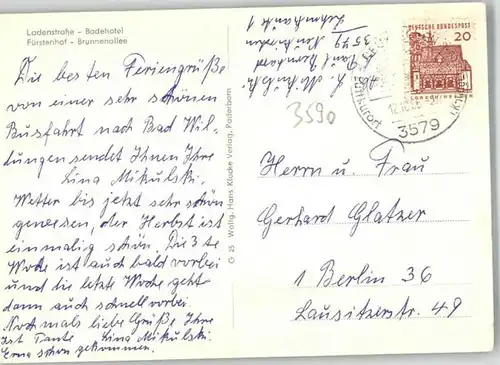 Ladenstraße - Badehotel
Fürstenhof - Brunnenallee
Die besten Feriengrüße
von einer sehr schönen
Busfahrt nach Bad Wil-
dungen sendet Ihnen Ihre
Lina Mikulski.
Wetter bis jetzt sehr schön
gewesen, der Herbst ist
einmalig schön. Die 3te
Woche ist auch bald vorbei
und die letzte Woche geht
dann auch schnell vorbei.
Nochmals liebe Grüße Ihre
Ist Tante Lina Mikulski.
Erna schon gekommen.
G 25 Wollg. Hans Klocke Verlag, Paderborn
Abs. L. Mikulski
3579
3590
DEUTSCHE BUNDESPOST
20
3579
Herrn u. Frau
Gerhard Glatzer
1 Berlin 36
Lausitzerstr. 49